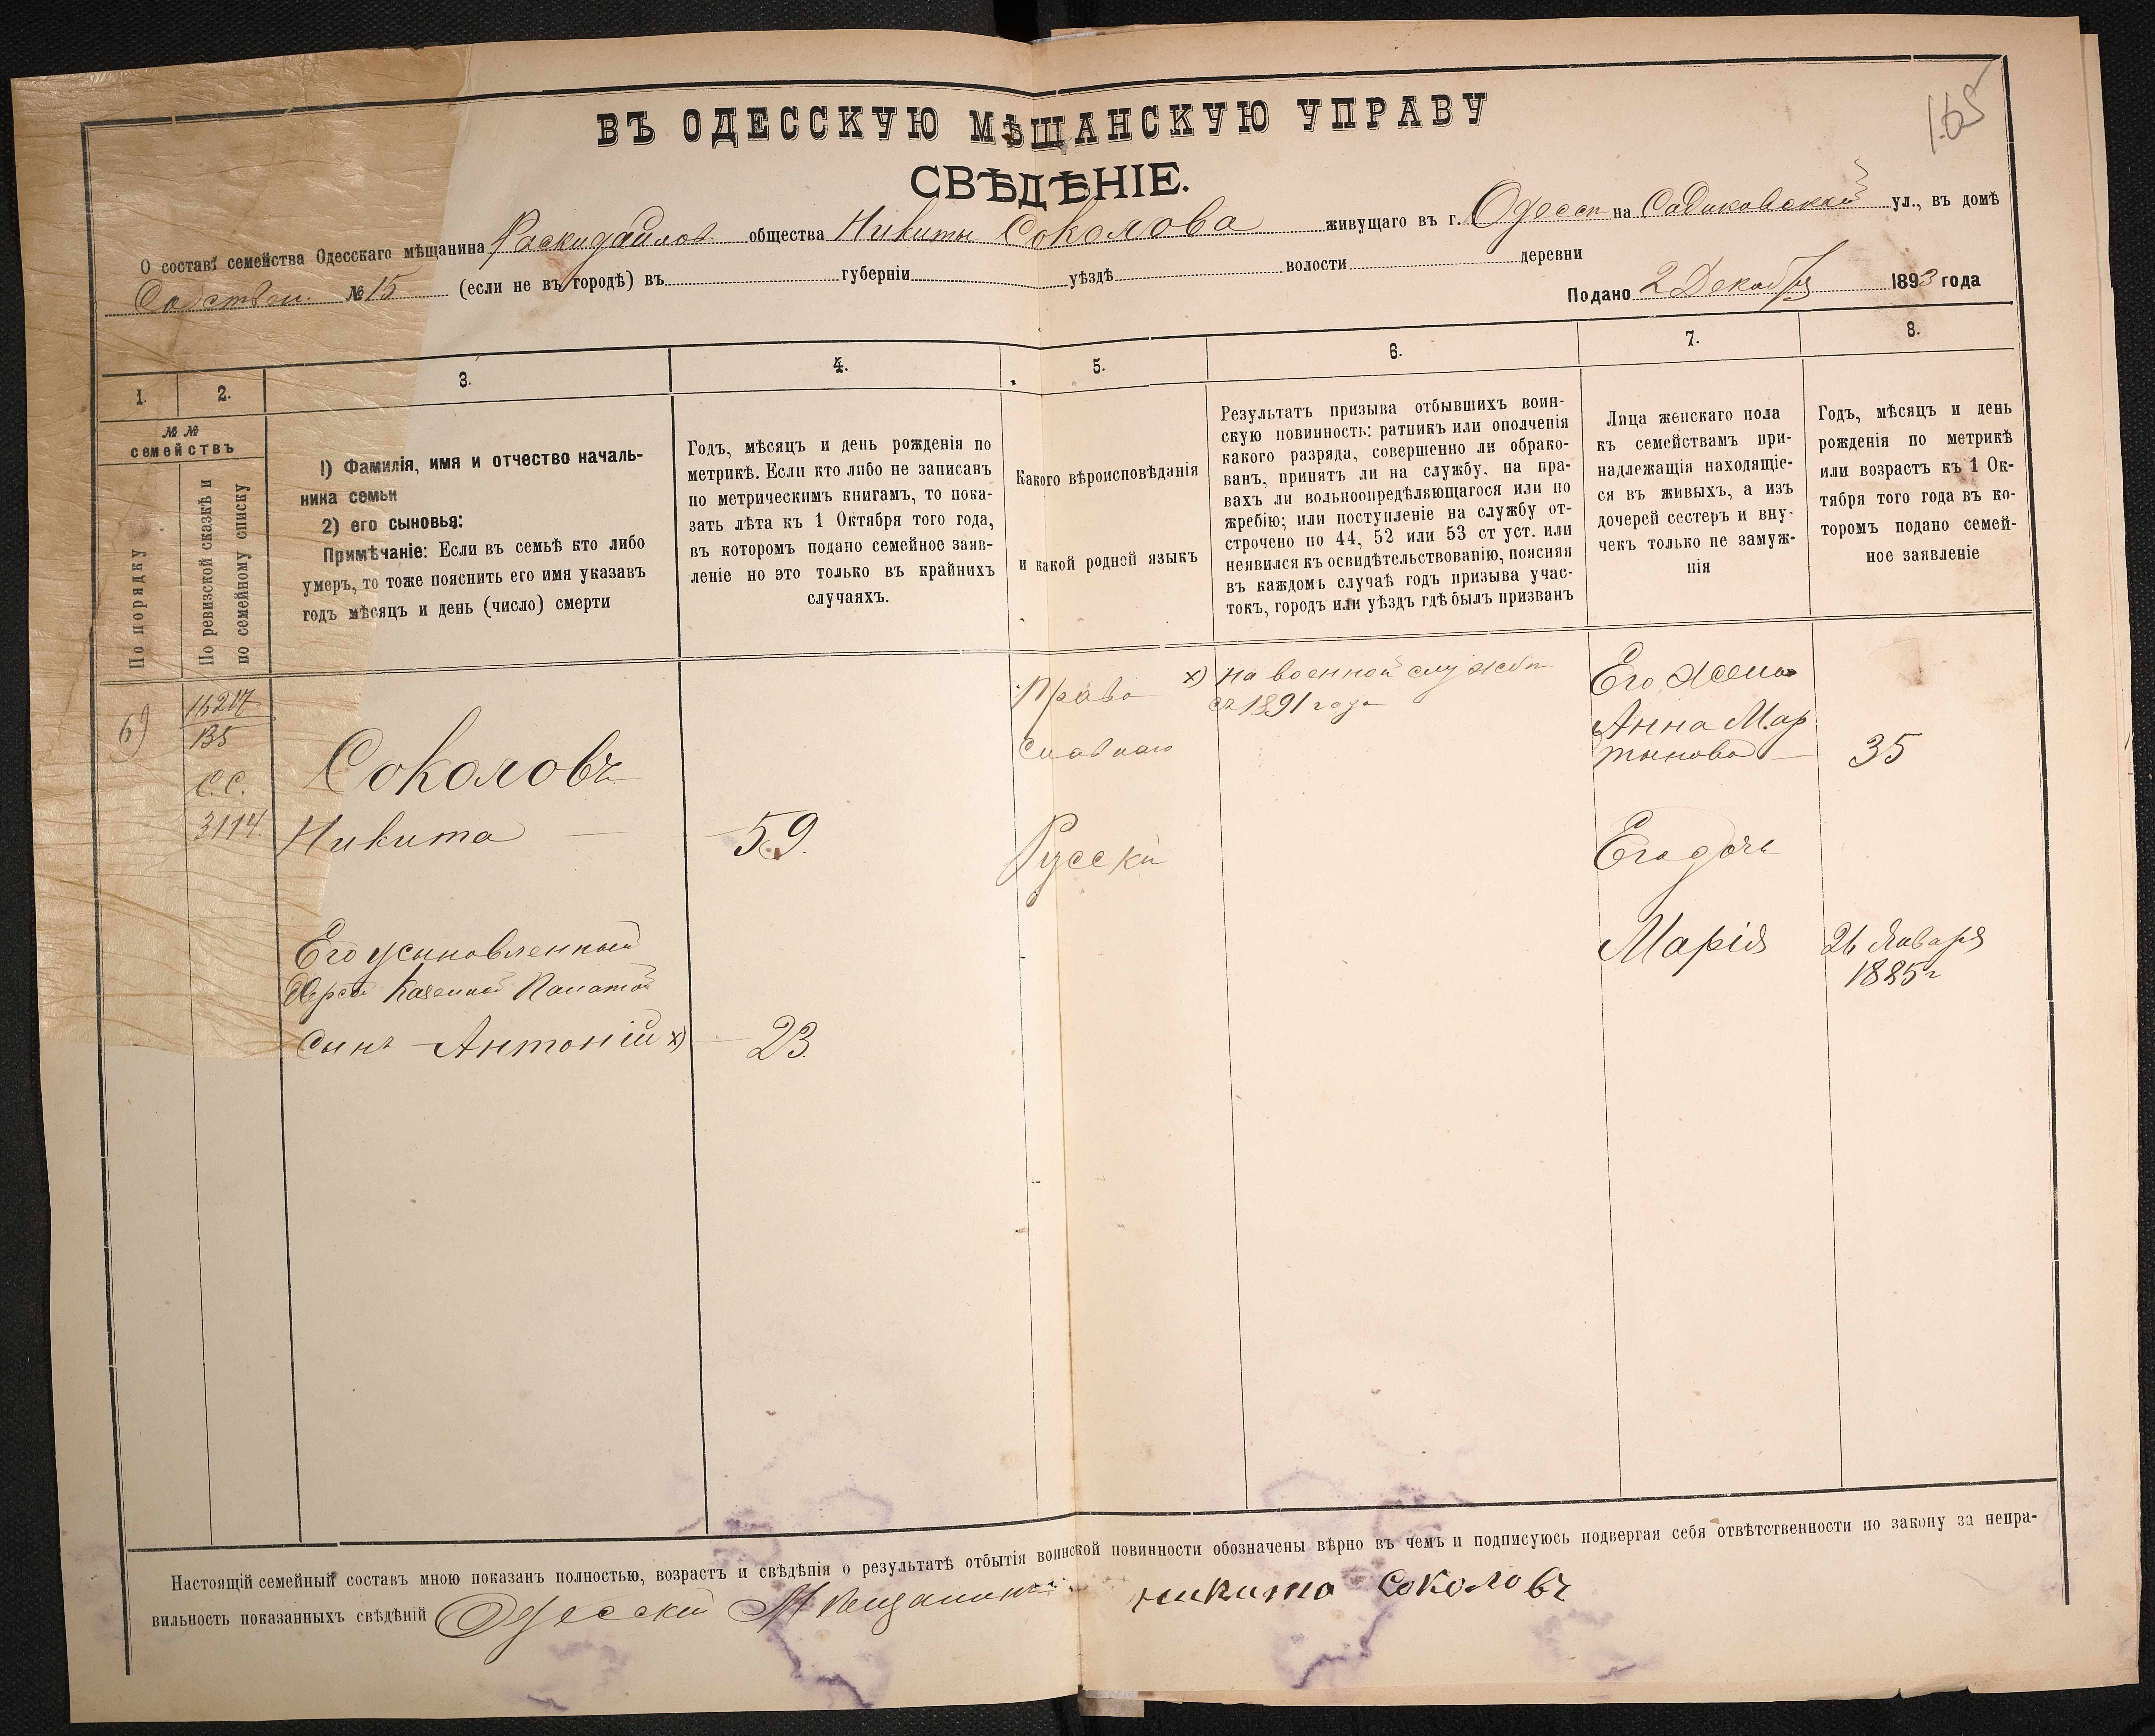 165
ВЪ ОДЕССКУЮ МѢЩАНСКУЮ УПРАВУ
СВѢДѢНІЕ.
О составѣ семейства Одесскаго мѣщанина Раскидайлов общества Никиты Соколова живущаго въ г. Одессѣ на Садиковской ул., въ домѣ
Собствен. № 15 (если не въ городѣ) въ губерніи уѣздѣ волости деревни
Подано 2 Декабря 1893 года
1. 2. 3. 4. 5. 6. 7. 8.
№ №
семействъ
По порядку
По ревизской сказкѣ и
по семейному списку
1) Фамилія, имя и отчество началь-
ника семьи
2) его сыновья:
Примѣчаніе: Если въ семьѣ кто либо
умеръ, то тоже пояснить его имя указавъ
годъ мѣсяцъ и день (число) смерти
Годъ, мѣсяцъ и день рожденія по
метрикѣ. Если кто либо не записанъ
по метрическимъ книгамъ, то пока-
зать лѣта къ 1 Октября того года,
въ которомъ подано семейное заяв-
леніе но это только въ крайнихъ
случаяхъ.
Какого вѣроисповѣданія
и какой родной языкъ
Результатъ призыва отбывшихъ воин-
скую повинность: ратникъ или ополченія
какого разряда, совершенно ли обрако-
ванъ, принятъ ли на службу, на пра-
вахъ ли вольноопредѣляющагося или по
жребію; или поступленіе на службу от-
строчено по 44, 52 или 53 ст уст. или
неявился къ освидѣтельствованію, поясняя
въ каждомъ случаѣ годъ призыва учас-
токъ, городъ или уѣздъ гдѣ былъ призванъ
Лица женскаго пола
къ семействамъ при-
надлежащія находящіе-
ся въ живыхъ, а изъ
дочерей сестеръ и вну-
чекъ только не замуж-
нія
Годъ, мѣсяцъ и день
рожденія по метрикѣ
или возрастъ къ 1 Ок-
тября того года въ ко-
торомъ подано семей-
ное заявленіе
6)
135
С. С.
3114.
Соколовъ
Никита — 59.
Его усыновленный
Херсон Казенной Палатой
сынъ Антоній х) 23.
Право
славнаго
Русскій
х) На военной службѣ
съ 1891 года
Его Жена
Анна Мар
тынова — 35
Его дочь
Марія
26 Января
1885 г
Настоящій семейный составъ мною показанъ полностью, возрастъ и свѣдѣнія о результатѣ отбытія воинской повинности обозначены вѣрно въ чемъ и подписуюсь подвергая себя отвѣтственности по закону за непра-
вильность показанныхъ свѣдѣній Одесскій Мѣщанинъ никита Соколовъ